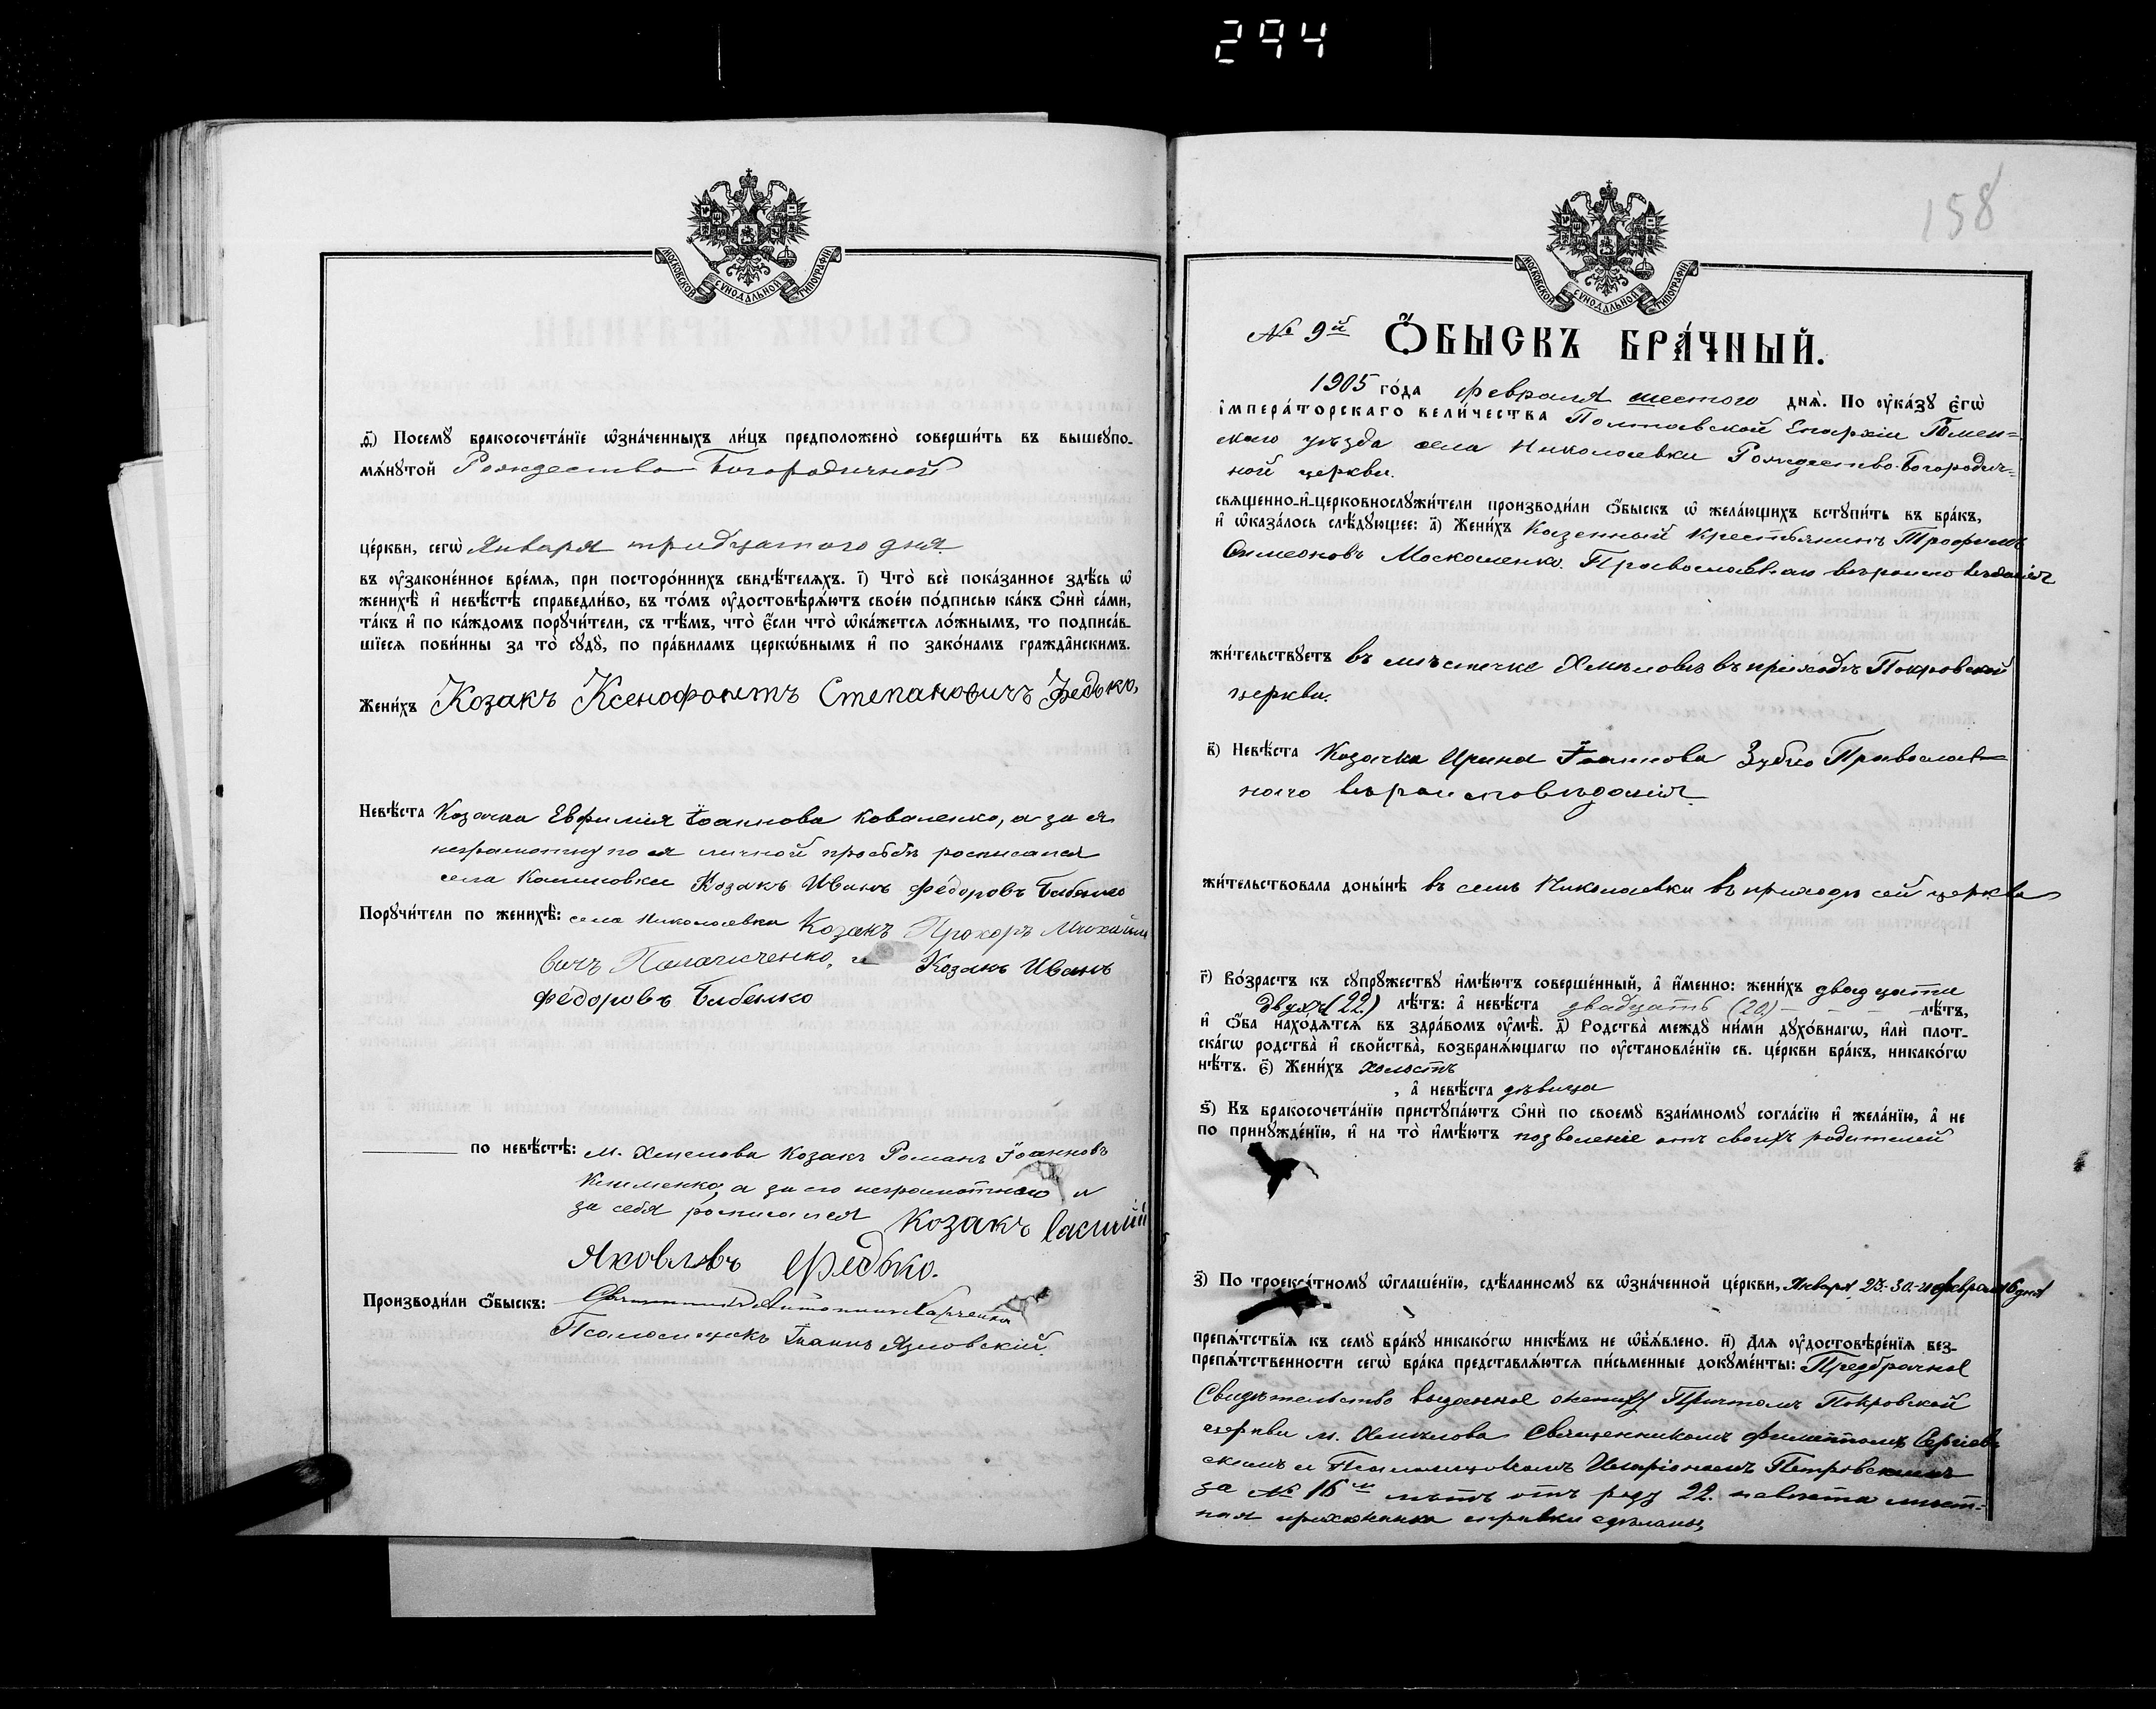 294
МОСКОВСКОЙ СѴНОДАЛЬНОЙ ТИПОГРАФІИ
ѳ҃) Посемꙋ бракосочетáнїе ѡ҆знáченныхъ ли́цъ предположенò соверши́ть въ вышеꙋпо-
мѧ́нꙋтой Рождество Богородичной
це́ркви, сегѡ̀ Января тридцатого дня
въ ᲂу҆законе́нное вре́мѧ, при посторо́ннихъ свидѣ́телѧхъ. і҃) Что̀ всѐ пока́занное здѣ́сь ѡ҆
женихѣ̀ и҆ невѣ́стѣ справедли́во, въ то́мъ ᲂу҆достовѣрѧ́ютъ свое́ю по́дписью ка́къ ѻ҆нѝ са́ми,
та́къ и҆ по ка́ждомъ порꙋчи́тели, съ тѣ́мъ, что̀ є҆́сли что̀ ѡ҆ка́жетсѧ ло́жнымъ, то подписа́в-
шїесѧ пови́нны за то̀ сꙋдꙋ̀, по пра́виламъ церко́внымъ и҆ по зако́намъ гражда́нскимъ.
Жени́хъ Козакъ Ксенофонтъ Степановичъ Федько,
Невѣ́ста Козачка Евфимія Іоаннова Коваленко, а за ея
неграмотну по ея личной просьбѣ росписался
села Козакъ Иванъ Федоровъ Бабенко
Порꙋчи́тели по женихѣ̀: села Николаевки Козакъ Прохоръ Михайло
вичъ и Козакъ Иванъ
Федоровъ Бабенко
по невѣ́стѣ: м. Хмелова Козакъ Романъ Іоанновъ
Клименко, а за его неграмотнаго и
за себя росписался Козакъ Василий
Яковлевъ Федько.
Производи́ли ѻ҆́быскъ: Священникъ Харченко
Псаломщикъ Іоаннъ Язловскій.
158
МОСКОВСКОЙ СѴНОДАЛЬНОЙ ТИПОГРАФІИ
№ 9й Ѻ҆́БЫСКЪ БРА́ЧНЫЙ.
1905 го́да февраля шестого днѧ̀. По ᲂу҆ка́зꙋ є҆гѡ̀
і҆мпера́торскаго вели́чества Полтавской Епархіи Ромен=
скаго уѣзда села Николаевки Рождество-Богородич=
ной церкви.
свѧщенно-и҆-церковнослꙋжи́тели производи́ли ѻ҆́быскъ ѡ҆ жела́ющихъ встꙋпи́ть въ бра́къ,
и҆ ѡ҆каза́лось слѣ́дꙋющее: а҃) Жени́хъ Казенный Крестьянинъ Трофимъ
Симеоновъ Москаленко. Православнаго вѣроисповѣданія
жи́тельствꙋетъ въ мѣстечкѣ Хмѣловѣ въ приходѣ Покровской
церкви.
в҃) Невѣ́ста Козачка Ирина Іоаннова Зубко Православ
наго вѣроисповѣданія.
жи́тельствовала доны́нѣ въ селѣ Николаевки въ приходѣ сей церкви
г҃) Во́зрастъ къ сꙋпрꙋ́жествꙋ и҆мѣ́ютъ соверше́нный, а҆ и҆́менно: жени́хъ двадцати
двухъ (22.) лѣ́тъ: а҆ невѣ́ста двадцать (20) - - - лѣ́тъ,
и҆ ѻ҆́ба нахо́дѧтсѧ въ здра́вомъ ᲂу҆мѣ̀. д҃) Родства̀ междꙋ ни́ми дꙋхо́внагѡ, и҆лѝ плот-
ска́гѡ родства̀ и҆ свойства̀, возбранѧ́ющагѡ по ᲂу҆становле́нїю св. це́ркви бра́къ, никако́гѡ
нѣ́тъ. є҃) Жени́хъ холостъ
, а҆ невѣ́ста дѣвица
ѕ҃) Къ бракосочета́нїю пристꙋпа́ютъ ѻ҆нѝ по своемꙋ̀ взаи́мномꙋ согла́сїю и҆ жела́нїю, а҆ не
по принꙋжде́нїю, и҆ на то̀ и҆мѣ́ютъ позволеніе отъ своихъ родителей
з҃) По троекра́тномꙋ ѡ҆глаше́нїю, сдѣ́ланномꙋ въ ѡ҆зна́ченной це́ркви, Января 23.-30.-и февраля 6 дня
препѧ́тствїѧ къ семꙋ̀ бра́кꙋ никако́гѡ никѣ́мъ не ѡ҆б̾ѧ́влено. и҃) Длѧ ᲂу҆достовѣре́нїѧ без-
препѧ́тственности сегѡ̀ бра́ка представлѧ́ютсѧ пи́сьменные докꙋме́нты: Предбрачное
Свидѣтельство выданное жениху Причтомъ Покровской
церкви м. Хмѣлова Священникомъ Филиппомъ Сергіев
скимъ и Псаломщикомъ Иларіономъ Петровскимъ
за № 16м лѣтъ отъ роду 22. невѣста мѣст=
ная прихожанка справки сдѣланы,